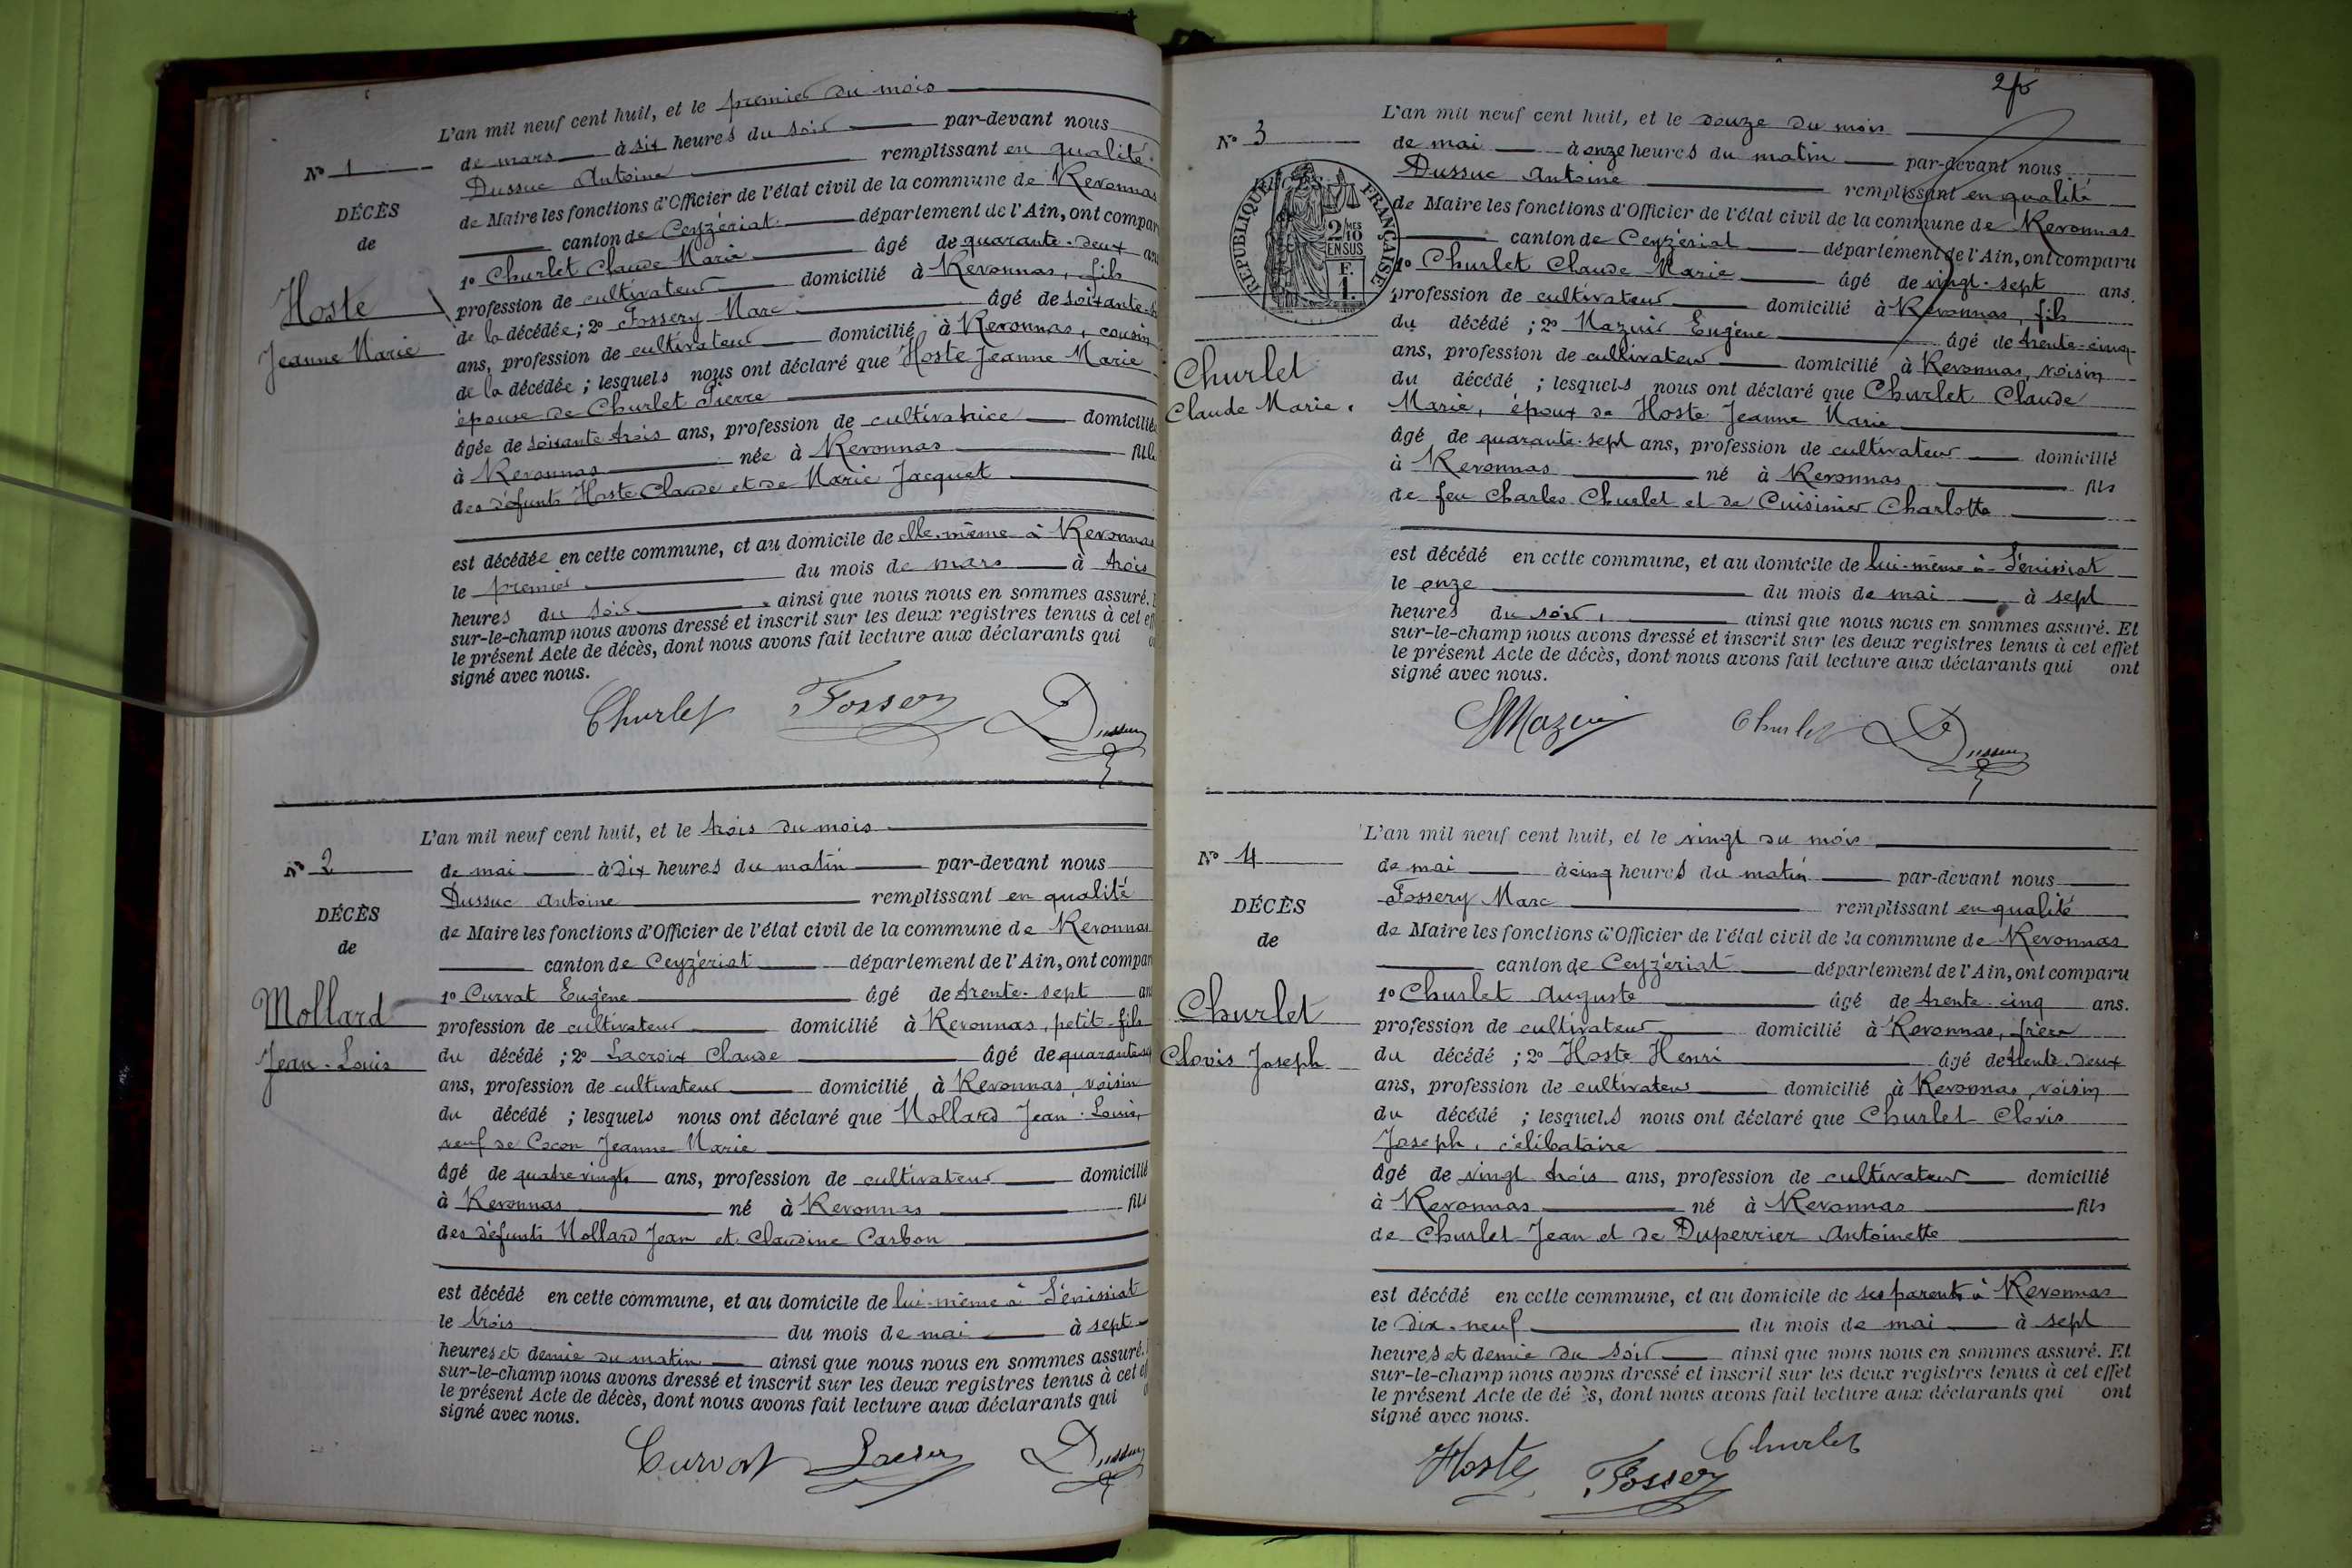 N° 1
DÉCÈS
de
Hoste
Jeanne Marie
L'an mil neuf cent huit, et le premier du mois
de mars à six heures du soir par-devant nous
Dussuc Antoine remplissant en qualité
de Maire les fonctions d'Officier de l'état civil de la commune de Revonnas
canton de Ceyzériat département de l'Ain, ont compar
1° Churlet Claude Marie âgé de quarante-deux ans
profession de cultivateur domicilié à Revonnas, fils
de la décédée ; 2° Fossery Marc âgé de soixante
ans, profession de cultivateur domicilié à Revonnas, cousin
de la décédée ; lesquels nous ont déclaré que Hoste Jeanne Marie
épouse de Churlet Pierre
âgée de soixante trois ans, profession de cultivatrice domiciliée
à Revonnas née à Revonnas fille
des défunts Hoste Claude et de Marie Jacquet
est décédée en cette commune, et au domicile de elle-même à Revonnas
le premier du mois de mars à trois
heures du soir ainsi que nous nous en sommes assuré.
sur-le-champ nous avons dressé et inscrit sur les deux registres tenus à cet eff
le présent Acte de décès, dont nous avons fait lecture aux déclarants qui
signé avec nous.
Churlet Fossery Dussuc
N° 2
DÉCÈS
de
Mollard
Jean-Louis
L'an mil neuf cent huit, et le trois du mois
de mai à dix heures du matin par-devant nous
Dussuc Antoine remplissant en qualité
de Maire les fonctions d'Officier de l'état civil de la commune de Revonnas
canton de Ceyzériat département de l'Ain, ont compar
1° Curvat Eugène âgé de trente-sept an
profession de cultivateur domicilié à Revonnas, petit-fils
du décédé ; 2° Lacroix Claude âgé de quarante
ans, profession de cultivateur domicilié à Revonnas, voisin
du décédé ; lesquels nous ont déclaré que Mollard Jean-Louis,
veuf de Cocon Jeanne Marie
âgé de quatre vingts ans, profession de cultivateur domicilié
à Revonnas né à Revonnas fils
des défunts Mollard Jean et Claudine Carbon
est décédé en cette commune, et au domicile de lui-même à Sénissiat
le trois du mois de mai à sept
heures et demie du matin ainsi que nous nous en sommes assuré.
sur-le-champ nous avons dressé et inscrit sur les deux registres tenus à cet ef
le présent Acte de décès, dont nous avons fait lecture aux déclarants qui
signé avec nous.
Curvat Lacroix Dussuc
N° 3
RÉPUBLIQUE FRANÇAISE
2/10MES
EN SUS
F.
1.
Churlet
Claude Marie.
L'an mil neuf cent huit, et le douze du mois
de mai à onze heures du matin par-devant nous
Dussuc Antoine remplissant en qualité
de Maire les fonctions d'Officier de l'état civil de la commune de Revonnas
canton de Ceyzériat département de l'Ain, ont comparu
1° Churlet Claude Marie âgé de vingt-sept ans.
profession de cultivateur domicilié à Revonnas, fils
du décédé ; 2° Mazuir Eugène âgé de trente-cinq
ans, profession de cultivateur domicilié à Revonnas, voisin
du décédé ; lesquels nous ont déclaré que Churlet Claude
Marie, époux de Hoste Jeanne Marie
âgé de quarante-sept ans, profession de cultivateur domicilié
à Revonnas né à Revonnas fils
de feu Charles Churlet et de Cuisinier Charlotte
est décédé en cette commune, et au domicile de lui-même à Sénissiat
le onze du mois de mai à sept
heures du soir, ainsi que nous nous en sommes assuré. Et
sur-le-champ nous avons dressé et inscrit sur les deux registres tenus à cet effet
le présent Acte de décès, dont nous avons fait lecture aux déclarants qui ont
signé avec nous.
Mazuir Churlet Dussuc
N° 4
DÉCÈS
de
Churlet
Clovis Joseph
L'an mil neuf cent huit, et le vingt du mois
de mai à cinq heures du matin par-devant nous
Fossery Marc remplissant en qualité
de Maire les fonctions d'Officier de l'état civil de la commune de Revonnas
canton de Ceyzériat département de l'Ain, ont comparu
1° Churlet Auguste âgé de trente-cinq ans.
profession de cultivateur domicilié à Revonnas, frère
du décédé ; 2° Hoste Henri âgé de trente-deux
ans, profession de cultivateur domicilié à Revonnas, voisin
du décédé ; lesquels nous ont déclaré que Churlet Clovis
Joseph, célibataire
âgé de vingt trois ans, profession de cultivateur domicilié
à Revonnas né à Revonnas fils
de Churlet Jean et de Duperrier Antoinette
est décédé en cette commune, et au domicile de ses parents à Revonnas
le dix-neuf du mois de mai à sept
heures et demie du soir ainsi que nous nous en sommes assuré. Et
sur-le-champ nous avons dressé et inscrit sur les deux registres tenus à cet effet
le présent Acte de dé s, dont nous avons fait lecture aux déclarants qui ont
signé avec nous.
Hoste Fossery Churlet